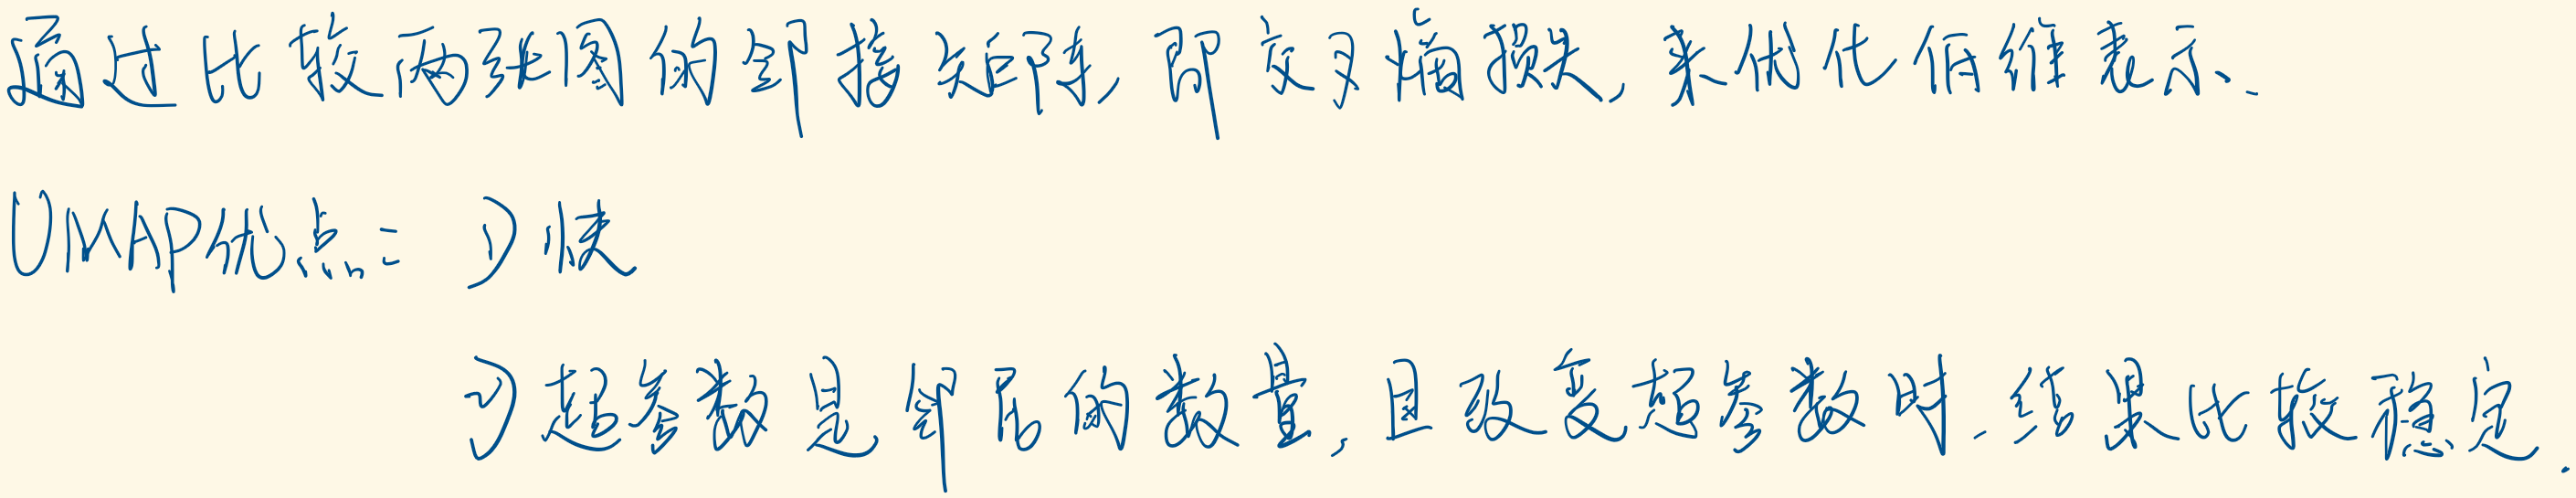 通过比较两张图的邻接矩阵,即交叉熵损失,来优化低维表示、
UMAP优点: 1)快
2)超参数是邻居的数量,且改变超参数时、结果比较稳定.